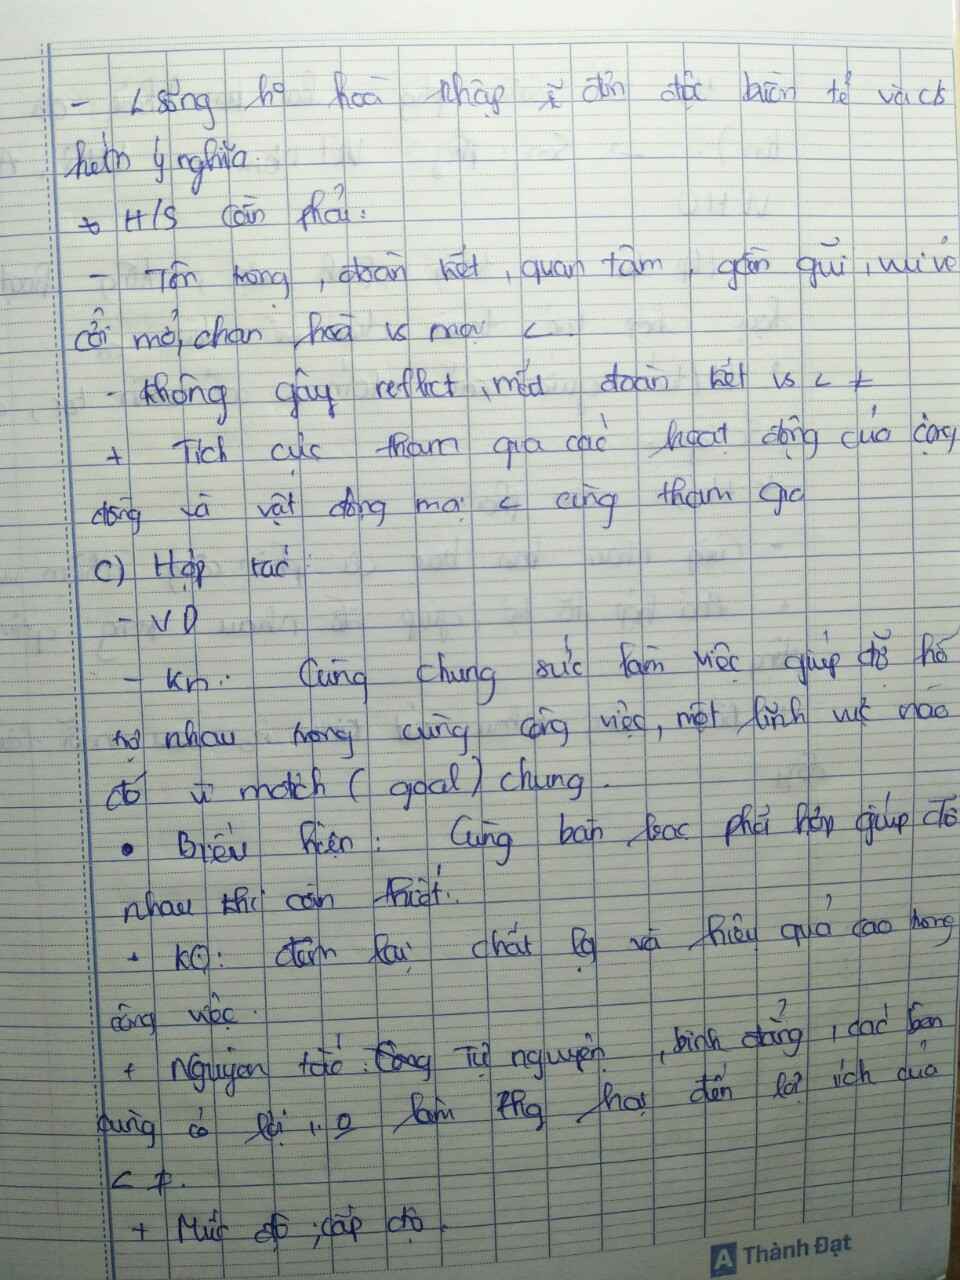 - < sống ko hoà nhập sẽ đơn độc buồn tẻ và cs
kém ý nghĩa.
+ H/S cần phải:
- Tôn trọng, đoàn kết, quan tâm, gần gũi, vui vẻ
cởi mở, chan hoà vs mọi <
- không gây reflict, mất đoàn kết vs < ≠
+ Tích cực tham gia các hoạt động của cộng
đồng và vật động mọi < cùng tham gia
c) Hợp tác:
- VD
- Kn: Cùng chung sức làm việc giúp đỡ hỗ
trợ nhau trong cùng công việc, một lĩnh vực nào
đó vì mđích (goal) chung.
• Biểu hiện: Cùng bàn bạc phối hợp giúp đỡ
nhau khi cần thiết.
+ KQ: đem lại chất lg và hiệu quả cao trong
công việc.
+ Nguyên tắc: Tự nguyện, bình đẳng, các bên
cùng có lợi, o làm phg hại đến lợi ích của
< ≠.
+ Mức độ, cấp độ.
A Thành Đạt